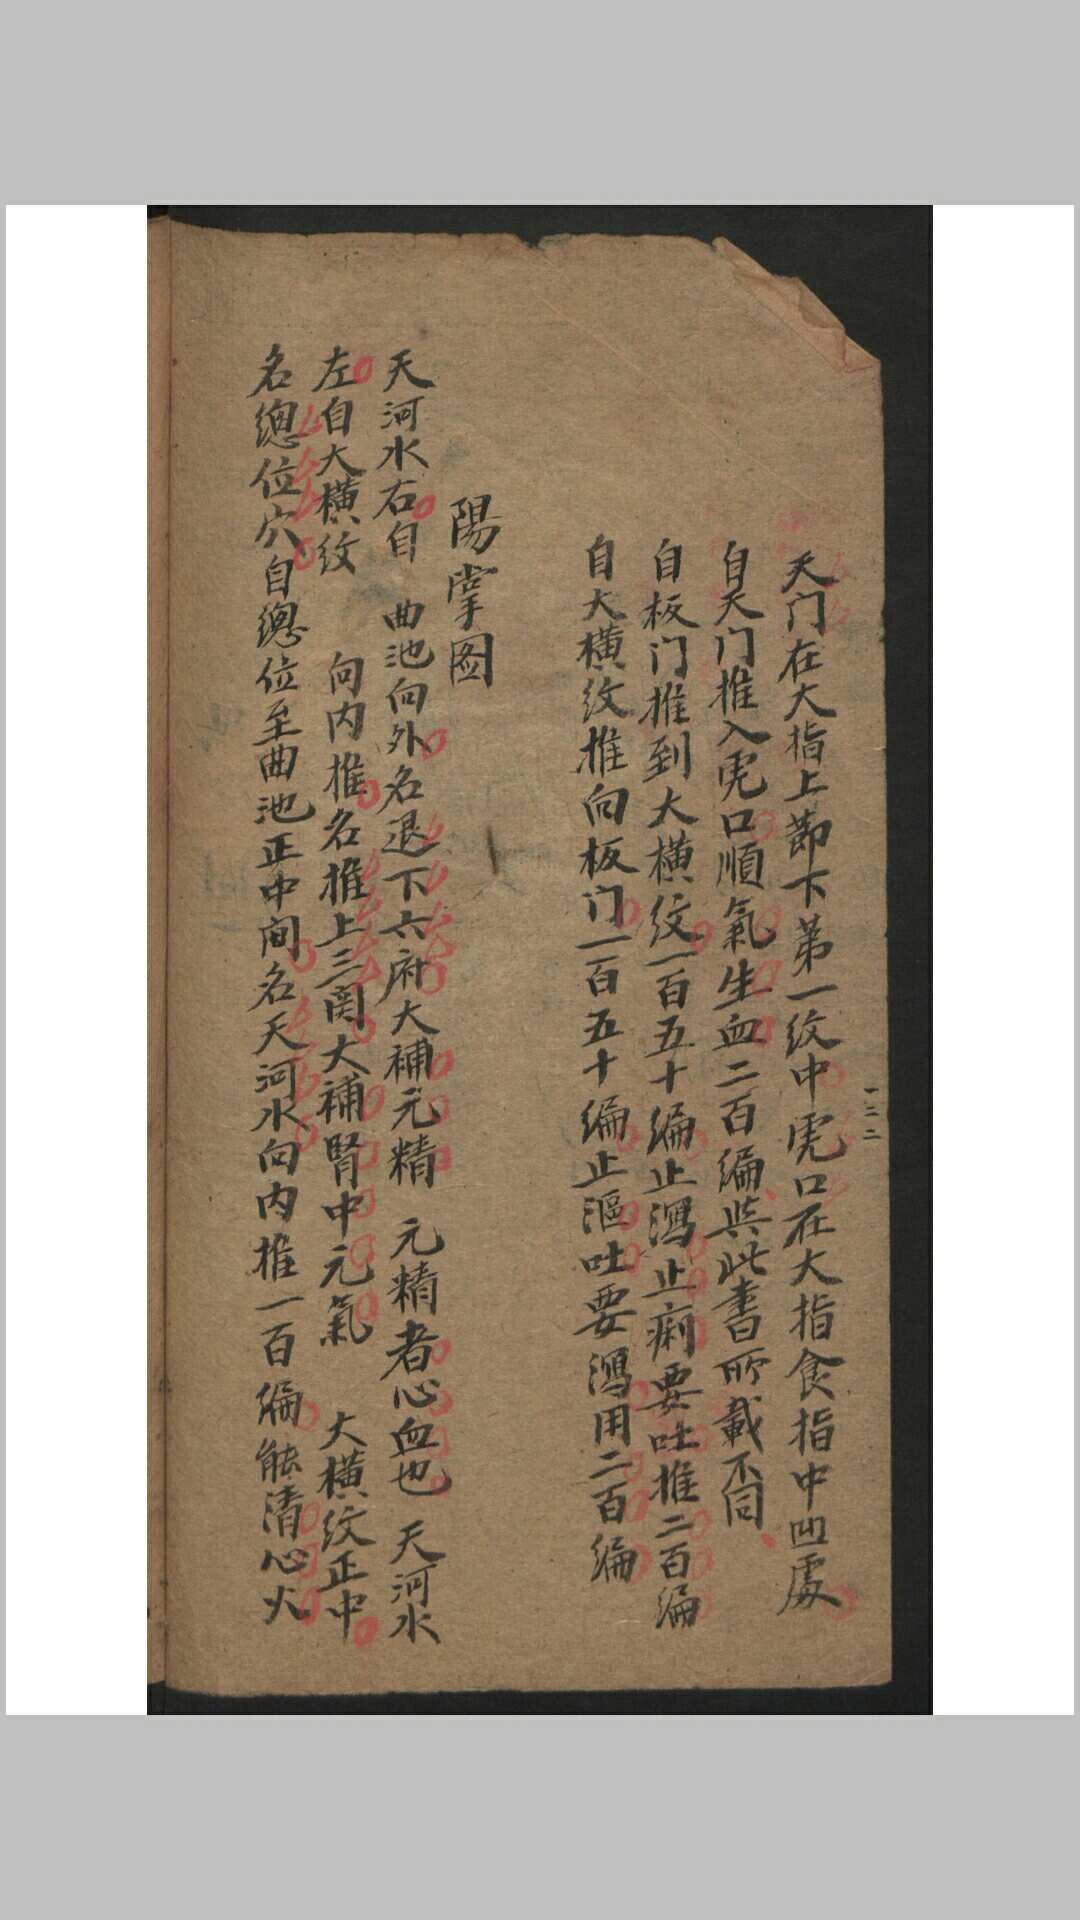 天门在大指上節下第一纹中虎口在大指食指中凹處
自天门推入虎口順氣生血二百编與此書所載不同
自板门推到大横纹一百五十编止瀉止痢要吐推二百编
自大横纹推向板门一百五十编止漚吐要瀉用二百编
陽掌图
天河水右自 曲池向外名退下六府大補元精 元精者心血也 天河水
左自大横纹 向内推名推上三関大補腎中元氣 大横纹正中
名總位穴自總位至曲池正中间名天河水向内推一百编能清心火
一二二